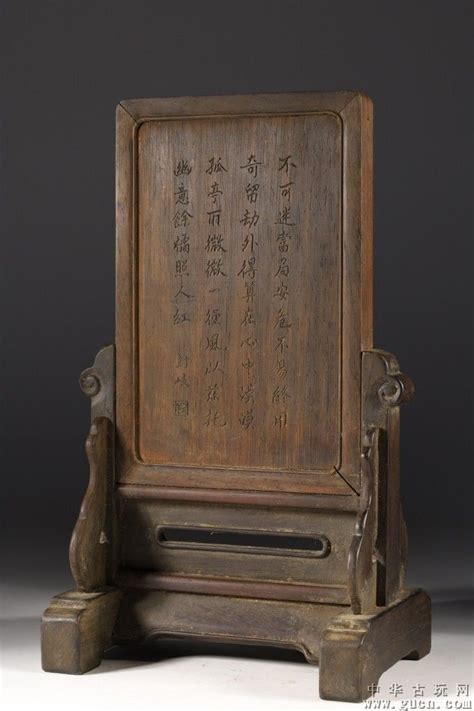 不可迷當局安危不易終用
奇留劫外得算在心中淡漠
孤亭雨微微一徑風以茲托
幽意餘照人紅
中华古玩网
www.gucn.com